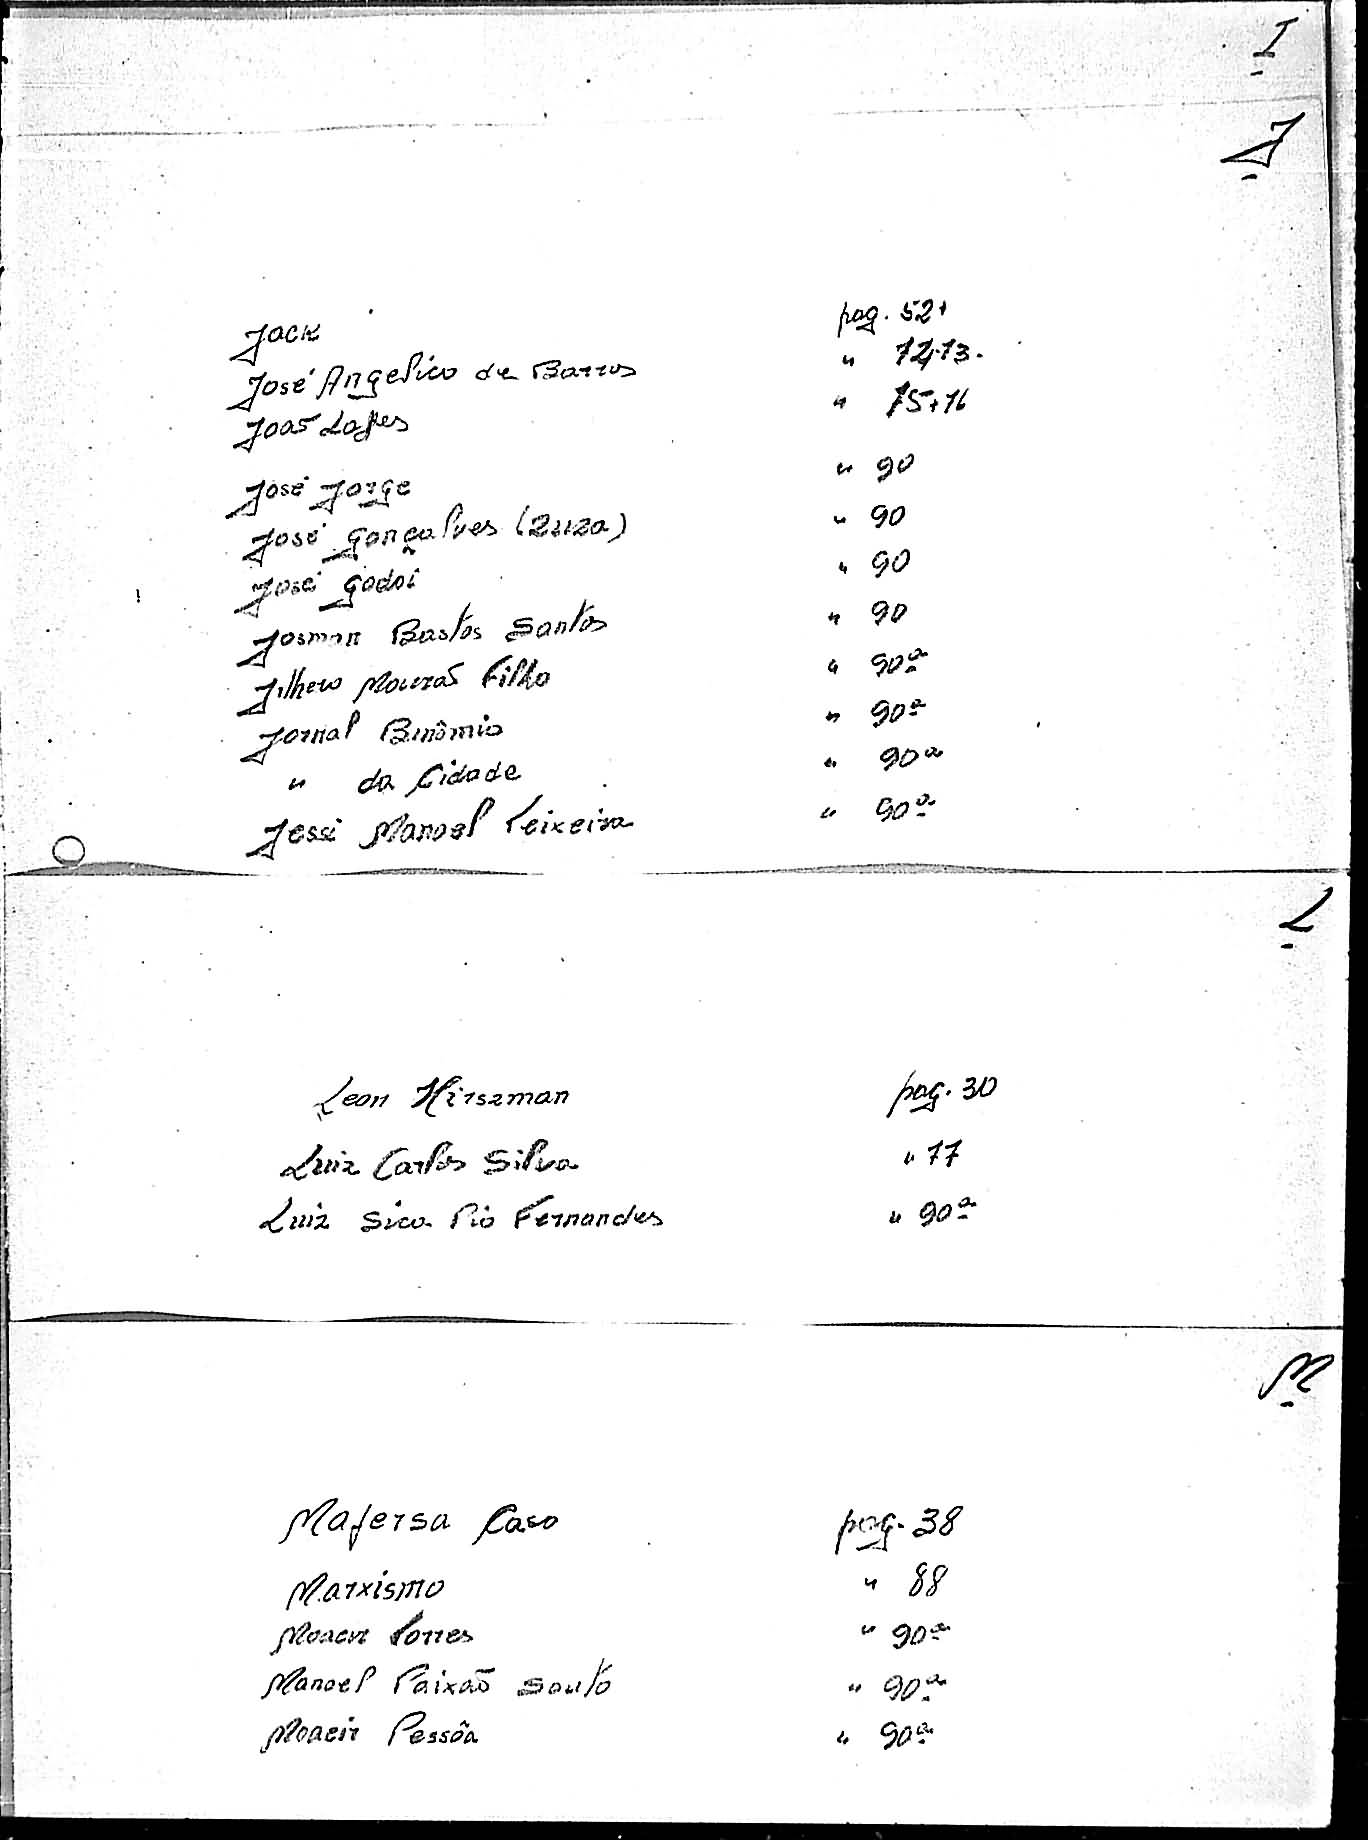 I
J
Jack pag. 52+
José Angelico de Barros " 72+73.
João Lopes " 75+76
José Jorge " 90
José Gonçalves (Zuza) " 90
José Godoi " 90
Josman Bastos Santos " 90
Jilhero Mourão Filho " 90ª
Jornal Binômio " 90ª
" da Cidade " 90ª
Jessé Manoel Teixeira " 90ª
L
Leon Hirszman pag. 30
Luiz Carlos Silva " 77
Luiz Sica Pio Fernandes " 90ª
M
Mafersa Caso pag. 38
Marxismo " 88
Moacir Torres " 90ª
Manoel Paixão Souto " 90ª
Moacir Pessôa " 90ª